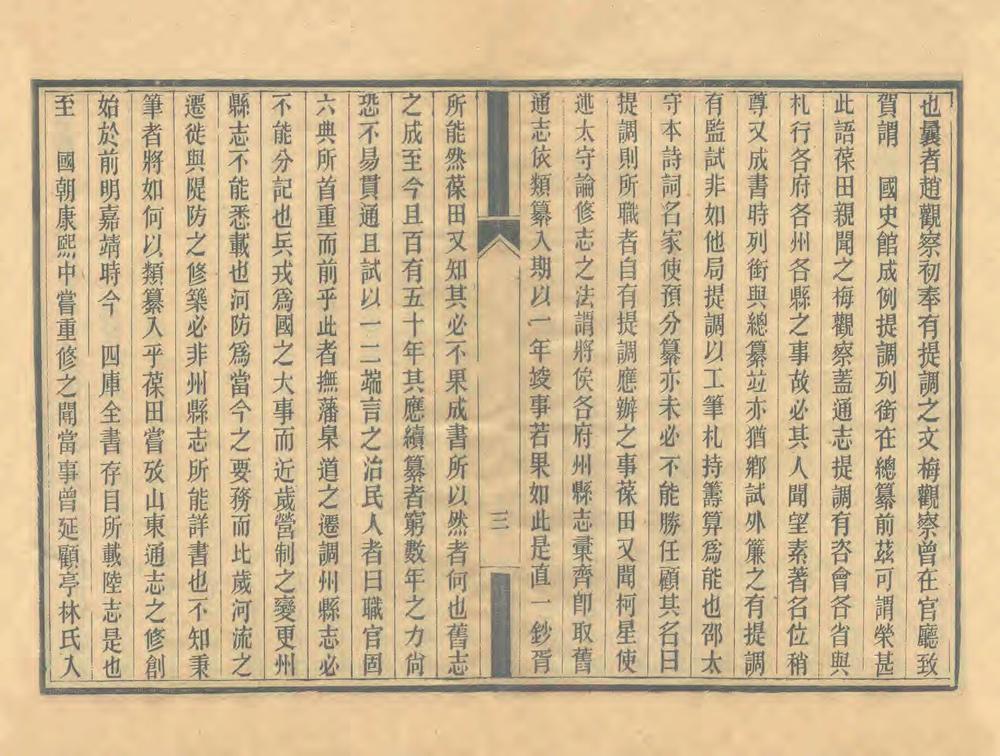 也曩者趙觀察初奉有提調之文梅觀察曾在官廳致
賀謂　國史館成例提調列銜在總纂前茲可謂榮甚
此語葆田親聞之梅觀察蓋通志提調有咨會各省與
札行各府各州各縣之事故必其人聞望素著名位稍
尊又成書時列銜與總纂竝亦猶鄉試外簾之有提調
有監試非如他局提調以工筆札持籌算為能也邵太
守本詩詞名家使預分纂亦未必不能勝任顧其名曰
提調則所職者自有提調應辦之事葆田又聞柯星使
述太守論修志之法謂將俟各府州縣志彙齊卽取舊
通志依類纂入期以一年竣事若果如此是直一鈔胥
三
所能然葆田又知其必不果成書所以然者何也舊志
之成至今且百有五十年其應續纂者窮數年之力尙
恐不易貫通且試以一二端言之治民人者曰職官固
六典所首重而前乎此者撫藩臬道之遷調州縣志必
不能分記也兵戎爲國之大事而近歲營制之變更州
縣志不能悉載也河防爲當今之要務而比歲河流之
遷徙與隄防之修築必非州縣志所能詳書也不知秉
筆者將如何以類纂入乎葆田嘗攷山東通志之修創
始於前明嘉靖時今　四庫全書存目所載陸志是也
至　國朝康熙中嘗重修之聞當事曾延顧亭林氏入